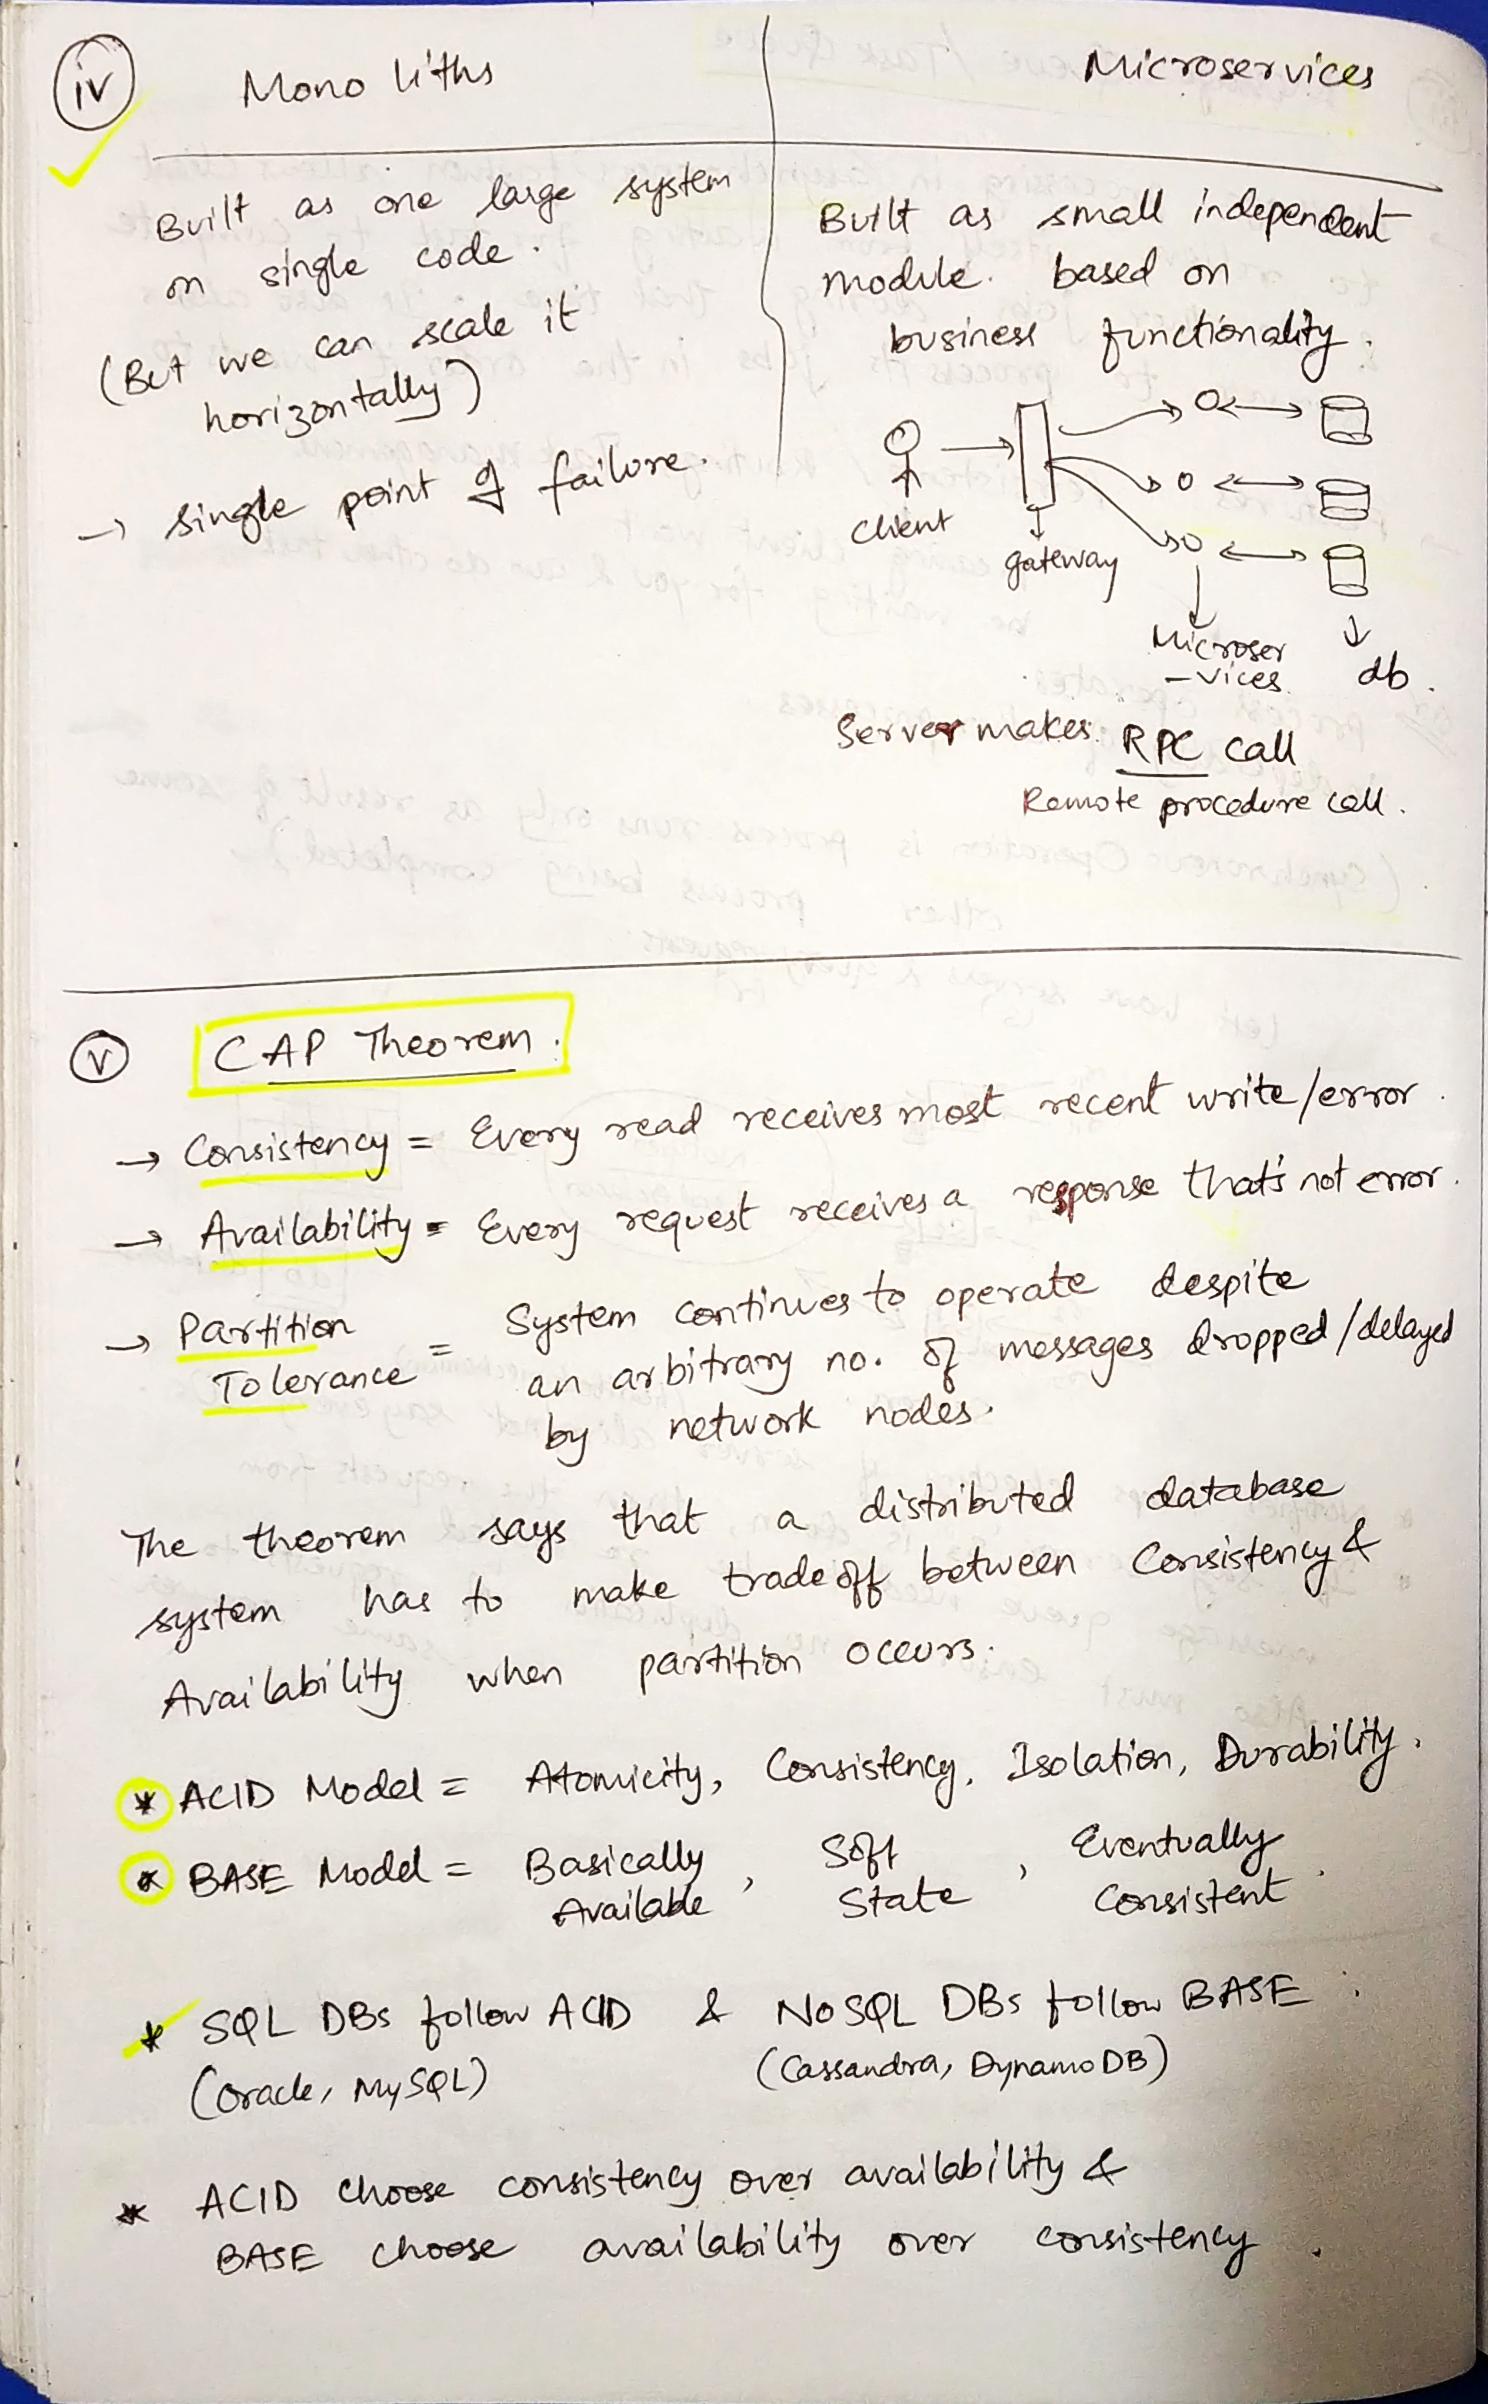 iv
Monoliths
Microservices
Built as one large system
on single code.
(But we can scale it
horizontally)
→ single point of failure.
Built as small independent
module. based on
business functionality.
client
gateway
Microser
-vices
db.
Server makes RPC call
Remote procedure call.
v
CAP Theorem.
→ Consistency = Every read receives most recent write/error.
→ Availability = Every request receives a response that's not error.
→ Partition
Tolerance = System continues to operate despite
an arbitrary no. of messages dropped/delayed
by network nodes.
The theorem says that a distributed database
system has to make tradeoff between Consistency &
Availability when partition occurs.
* ACID Model = Atomicity, Consistency, Isolation, Durability.
* BASE Model = Basically
Available, Soft
State, Eventually
Consistent.
* SQL DBs follow ACID & NoSQL DBs follow BASE.
(Oracle, MySQL) (Cassandra, DynamoDB)
* ACID choose consistency over availability &
BASE choose availability over consistency.